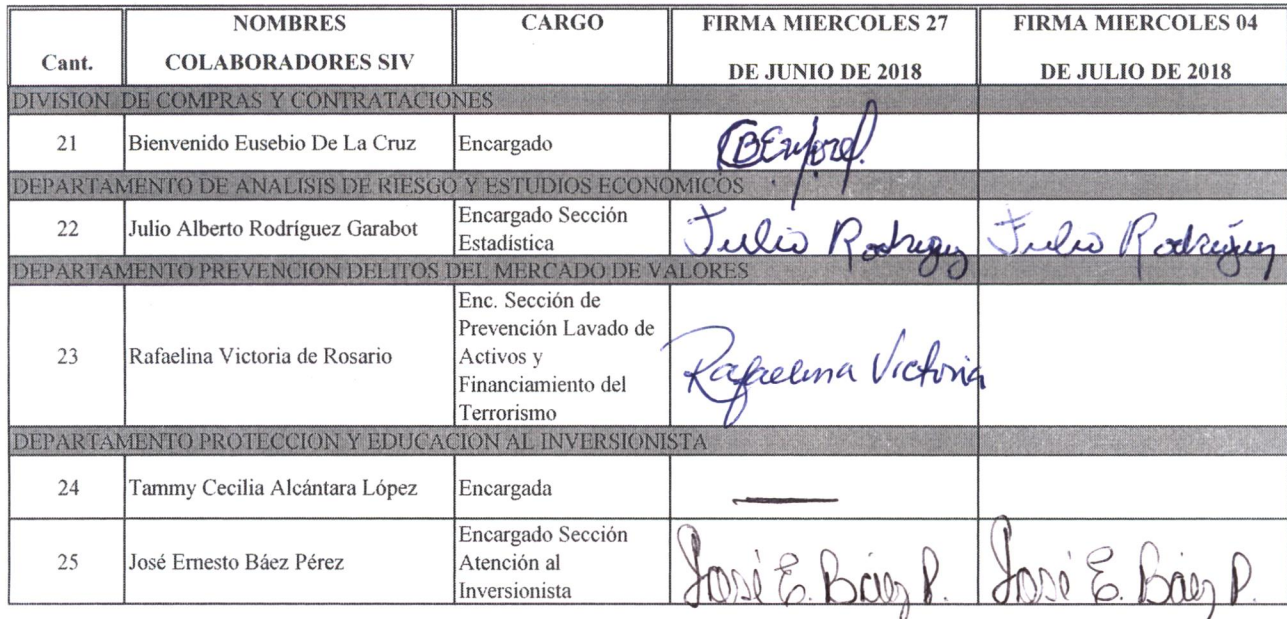 Cant. NOMBRES COLABORADORES SIV CARGO FIRMA MIERCOLES 27 DE JUNIO DE 2018 FIRMA MIERCOLES 04 DE JULIO DE 2018
DIVISION DE COMPRAS Y CONTRATACIONES
21 Bienvenido Eusebio De La Cruz Encargado
DEPARTAMENTO DE ANALISIS DE RIESGO Y ESTUDIOS ECONOMICOS
22 Julio Alberto Rodríguez Garabot Encargado Sección Estadística Julio Rodriguez Julio Rodríguez
DEPARTAMENTO PREVENCION DELITOS DEL MERCADO DE VALORES
23 Rafaelina Victoria de Rosario Enc. Sección de Prevención Lavado de Activos y Financiamiento del Terrorismo Rafaelina Victoria
DEPARTAMENTO PROTECCION Y EDUCACION AL INVERSIONISTA
24 Tammy Cecilia Alcántara López Encargada
25 José Ernesto Báez Pérez Encargado Sección Atención al Inversionista José E. Báez P. José E. Báez P.